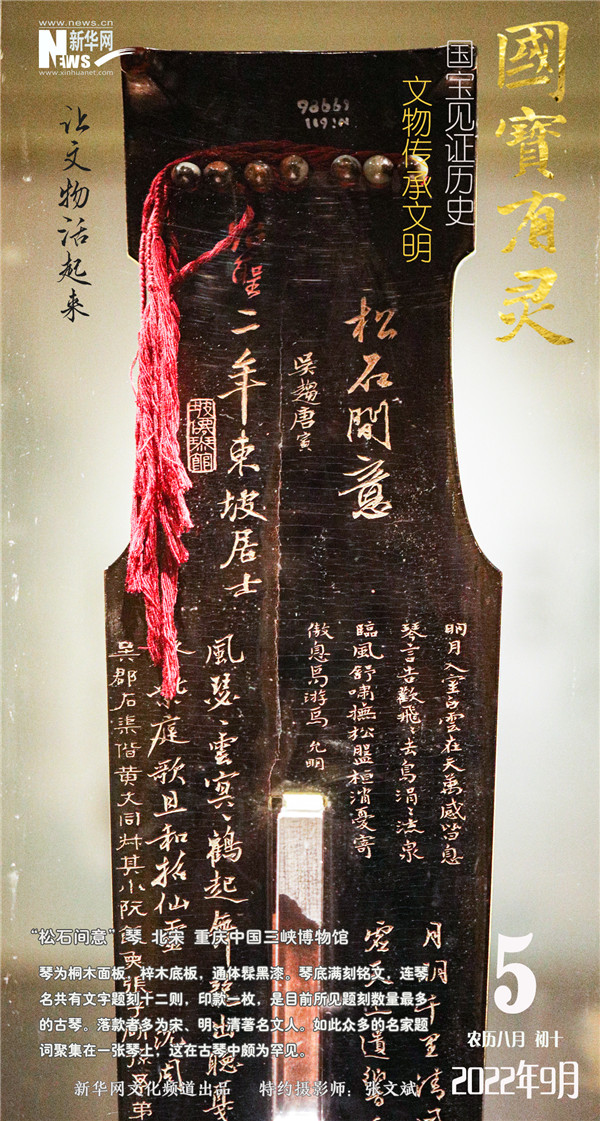 www.news.cn
新华网
NEWS
www.xinhuanet.com
國寶有灵
国宝见证历史
文物传承文明
让文物活起来
松石間意
吳趨唐寅
聖二年東坡居士
明月入室白雲在天萬感皆息
琴言告歡飛〻去鳥涓〻流泉
臨風舒嘯撫松盤桓消憂寄
傲息焉游焉 允明
月明千里清風
風瑟〻雲冥〻鶴起舞
庭歌且和招仙靈
吳郡石渠偕黃夫同
“松石间意”琴 北宋 重庆中国三峡博物馆
琴为桐木面板，梓木底板，通体髹黑漆。琴底满刻铭文，连琴
名共有文字题刻十二则，印款一枚，是目前所见题刻数量最多
的古琴。落款者多为宋、明、清著名文人。如此众多的名家题
词聚集在一张琴上，这在古琴中颇为罕见。
新华网文化频道出品 特约摄影师：张文斌
5
农历八月 初十
2022年9月